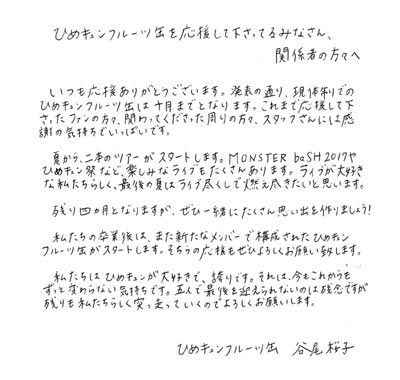 ひめキュンフルーツ缶を応援して下さってるみなさん、
関係者の方々へ
いつも応援ありがとうございます。発表の通り、現体制での
ひめキュンフルーツ缶は十月までとなります。これまで応援して下
さったファンの方々、関わってくださった周りの方々、スタッフさんには感
謝の気持ちでいっぱいです。
夏から、二本のツアーがスタートします。MONSTER baSH 2017や
ひめキュン祭など、楽しみなライブもたくさんあります。ライブが大好き
な私たちらしく、最後の夏はライブ尽くしで燃え尽きたいと思います。
残り四カ月となりますが、ぜひ一緒にたくさん思い出を作りましょう!
私たちの卒業後は、また新たなメンバーで構成されたひめキュン
フルーツ缶がスタートします。そちらの応援もぜひよろしくお願い致します。
私たちはひめキュンが大好きで、誇りです。それは、今もこれからも
ずっと変わらない気持ちです。五人で最後を迎えられないのは残念ですが
残りも私たちらしく突っ走っていくのでよろしくお願いします。
ひめキュンフルーツ缶 谷尾桜子